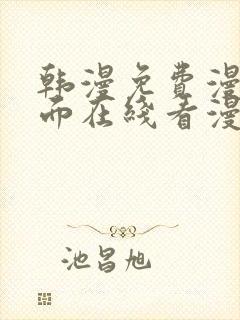 韩漫免费漫
而在线看漫
池昌旭